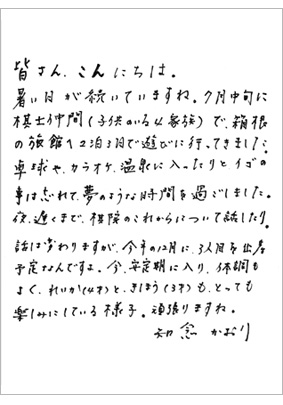 皆さん、こんにちは。
暑い日が続いていますね。7月中旬に
棋士仲間(子供のいる4家族)で、箱根
の旅館へ2泊3日で遊びに行ってきました。
卓球や、カラオケ、温泉に入ったりと、イゴの
事は忘れて、夢のような時間を過ごしました。
夜、遅くまで、棋院のこれからについて話したり。
話は変わりますが、今年の12月に、3人目を出産
予定なんですよ。今、安定期に入り、体調も
よく、れいか(4才)と、きほう(3才)も、とっても
楽しみにしている様子。頑張りますね。
知念 かおり